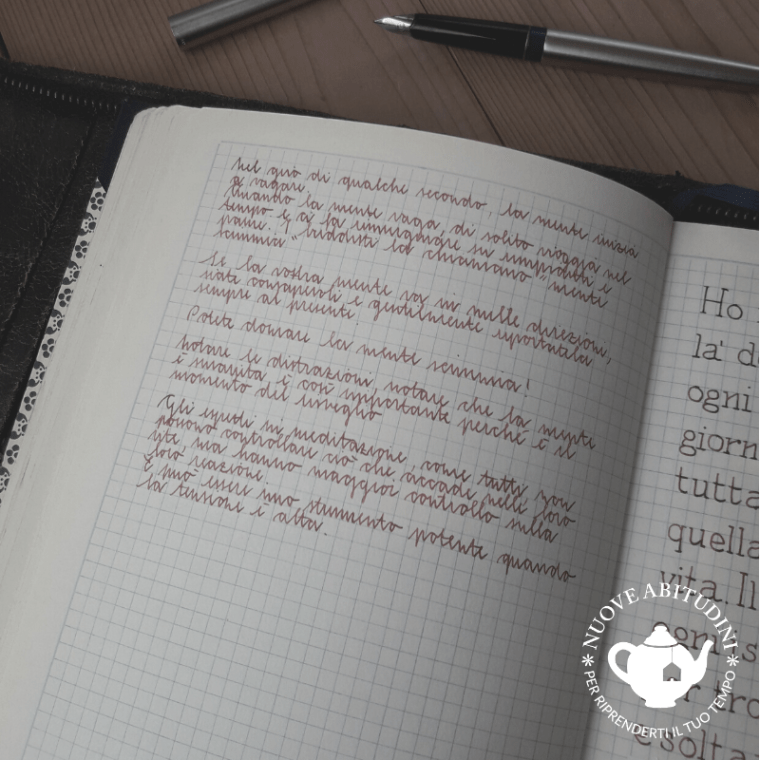 Nel giro di qualche secondo, la mente inizia
a vagare.
Quando la mente vaga, di solito viaggia nel
tempo e ci fa rimuginare su rimpianti e
paure. I buddisti la chiamano "mente
scimmia"
Se la vostra mente va in mille direzioni,
siate consapevoli e gentilmente riportatela
sempre al presente.
Potete domare la mente scimmia!
Notare le distrazioni, notare che la mente
è smarrita, è così importante perché è il
momento del risveglio
Gli esperti in meditazione, come tutti, non
possono controllare ciò che accade nelle loro
vite, ma hanno maggior controllo sulla
loro reazioni.
E può essere uno strumento potente quando
la tensione è alta.
Ho
la' d
ogni
giorn
tutta
quella
vita. Il
ogni s
r tro
è solta
NUOVE ABITUDINI
PER RIPRENDERTI IL TUO TEMPO